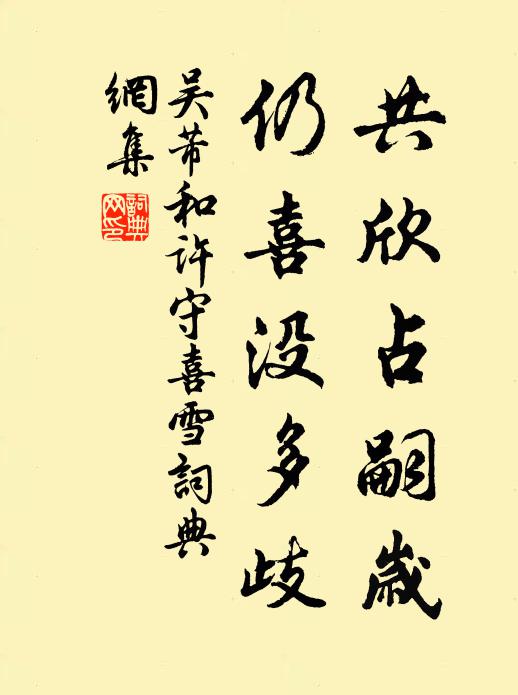 共欣占嗣歲
仍喜没多歧
吴芾和許守喜雪詞典
網集
詞典
网印